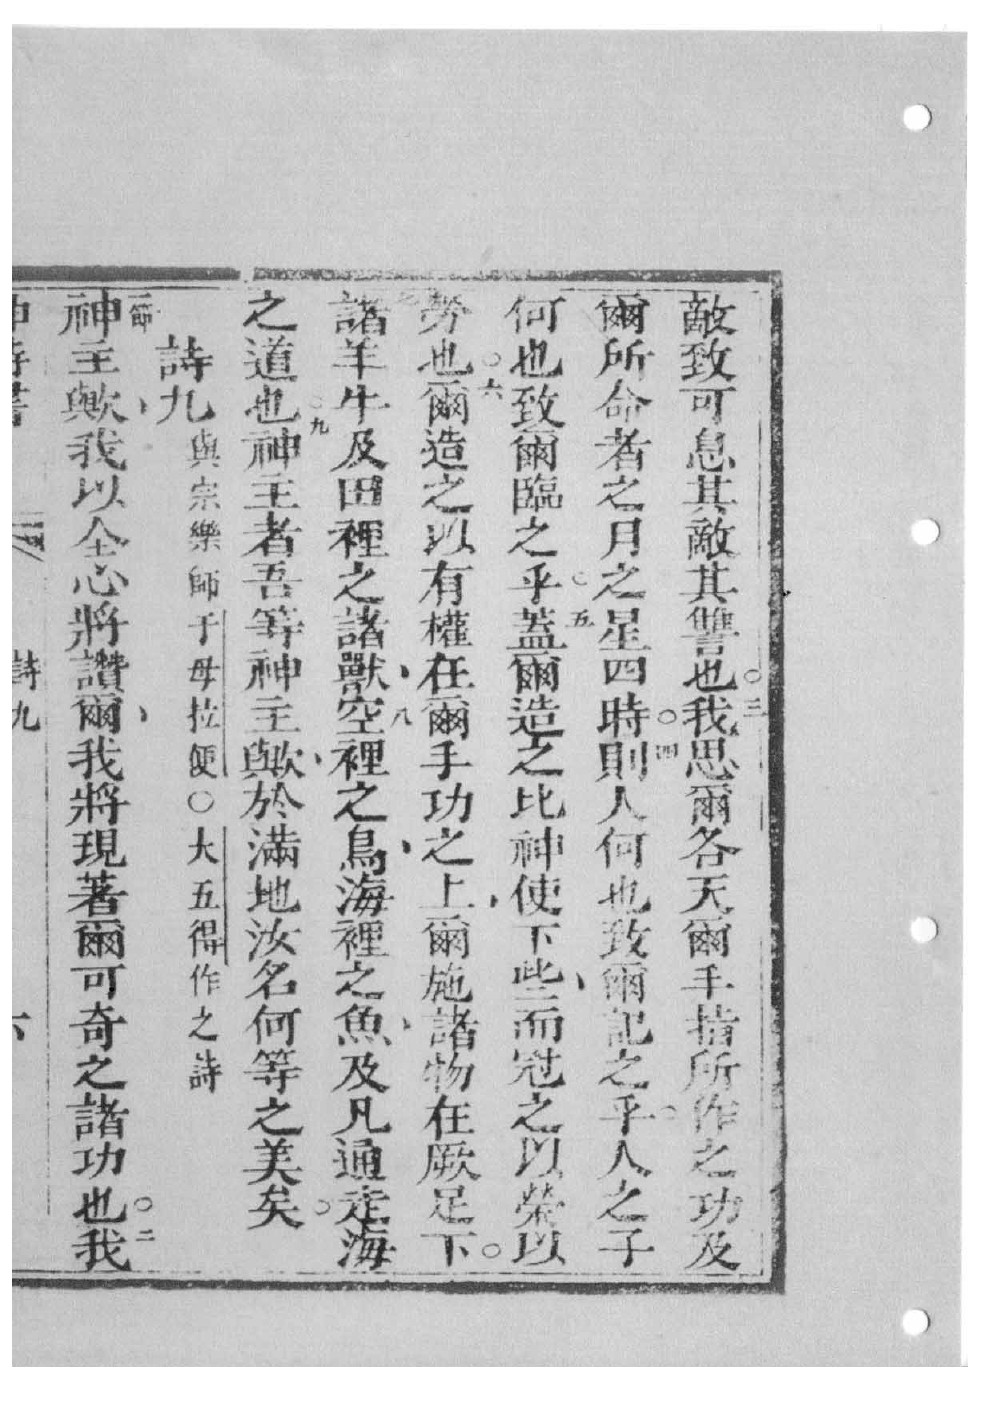 敵致可息其敵其讐也○三我思爾各天爾手指所作之功及
爾所命者之月之星四時○四則人何也致爾記之乎○人之子
何也致爾臨之乎○五蓋爾造之比神使下些、而冠之以榮以
勞也○六爾造之以有權在爾手功之上、爾施諸物在厥足下○
七諸羊牛及田裡之諸獸、八空裡之鳥、海裡之魚、及凡通走海
之道也○九神主者吾等神主歟、於滿地汝名何等之美矣○
詩九 與宗樂師于母拉便○大五得作之詩
一節神主歟、我以全心將讚爾、我將現著爾可奇之諸功也○二我
神詩書 詩九 六